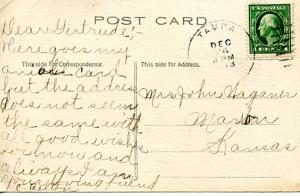 POST CARD
Dear Gertrude:-
Here goes my
one card
but the address
does not seem
the same with
all good wishes
for now and
always I am
your loving friend
This space for Correspondence.
This side for Address.
TAMPA
DEC
4
PM
13
Mrs John Waganer
Marion
Kansas